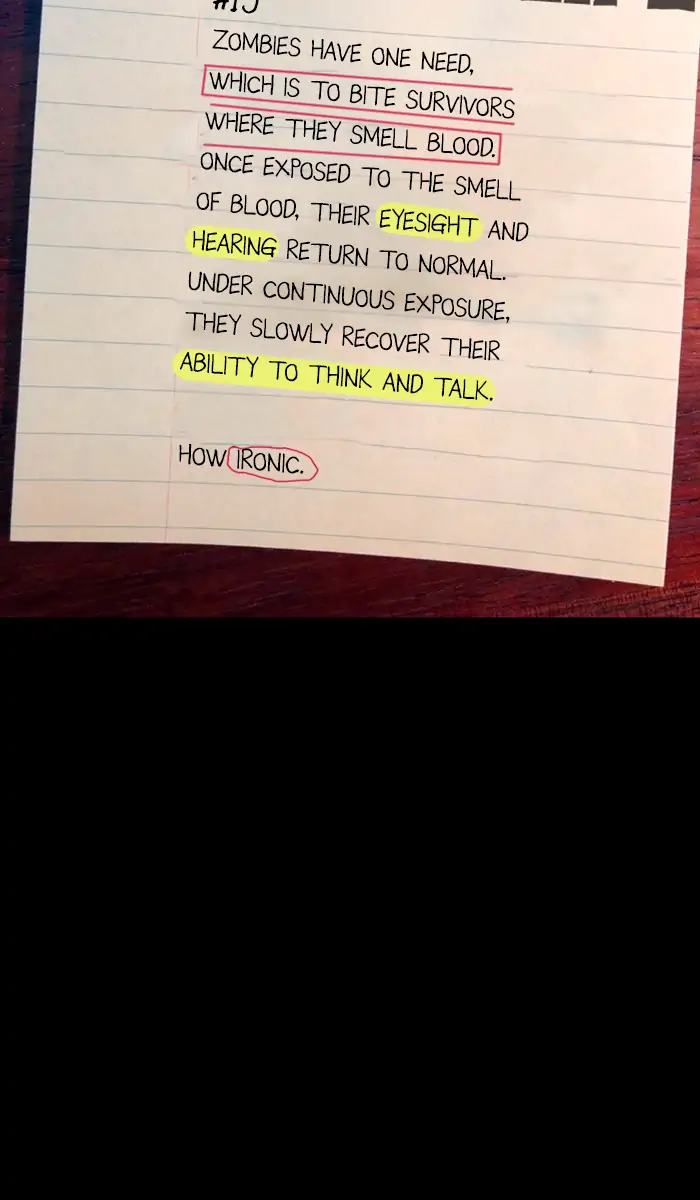 #15
ZOMBIES HAVE ONE NEED,
WHICH IS TO BITE SURVIVORS
WHERE THEY SMELL BLOOD.
ONCE EXPOSED TO THE SMELL
OF BLOOD, THEIR EYESIGHT AND
HEARING RETURN TO NORMAL.
UNDER CONTINUOUS EXPOSURE,
THEY SLOWLY RECOVER THEIR
ABILITY TO THINK AND TALK.
HOW IRONIC.